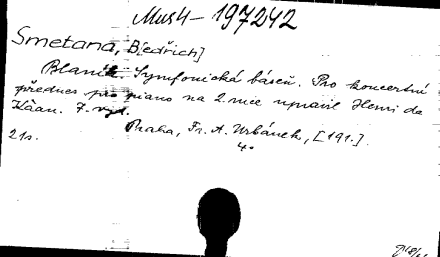 Mus4-197242
Smetana, B[edřich]
Blaník. Symfonická báseň. Pro koncertní
přednes pro piano na 2 ruce upravil Henri de
Kàan. 7. vyd.
Praha, Fr. A. Urbánek, [191.].
21s. 4°